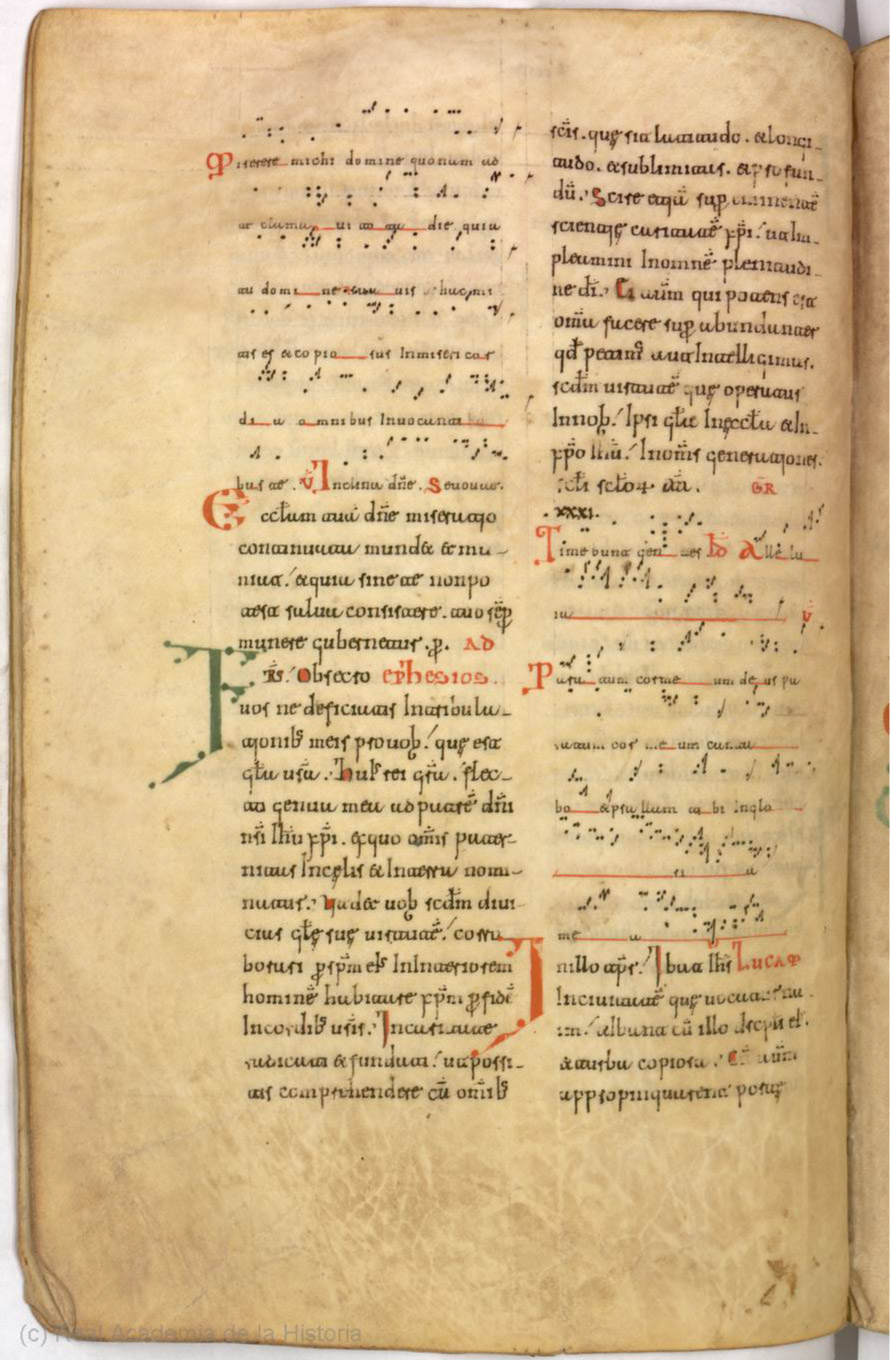 Miserere michi domine quoniam ad
te clamavi to ta die quia
tu domi ne suavis hac mi
tis es et copio sus In miseri cor
di a omnibus Invocanti
bus te. V̄ Inclina dn̄e. Seuouae.
Eccłam tuā dn̄e miseratio
continuata mundet et mu-
niat. et quia sine te non po
test salva consistere. tuo sēp
munere gubernetur. p. AD
FR̄S. Obsecro EPHESIOS.
vos ne deficiatis In tribula-
tionib; meis pro vob. quę est
gła vr̄a. Huius rei gr̄a. flec-
to genua mea ad patrē dn̄i
nr̄i Ihū xp̄i. ex quo om̄is pater-
nitas In cęlis et In terra nomi-
natur. Ut det vob scd̄m divi
cias głę suę virtutē. corro
borari p sp̄m ei In Interiorem
hominē habitare xp̄m p fidē
In cordib; vr̄is. In caritate
radicati et fundati. ut possi-
tis comprehendere cū om̄ib;
sc̄is. quę sit latitudo. et longi-
tudo. et sublimitas. et profun-
dū. Scire etiā sup eminentē
scientię caritatē xp̄i. ut im-
pleamini In omnē plenitudi-
ne dī. Ei autm̄ qui potens est
om̄ia facere sup abundanter
qd̄ petim aut Intelligimus.
scd̄m virtutē quę operatur
In nob. Ipsi głā In ęccła et In
xp̄o Ihū. In om̄s generationes.
scłi scło4 am̄. GR̄
XXXI.
Timebunt gen tes Alle lu
ia V̄
Paratum cor me um deus pa
ratum cor me um canta
bo et psallam ti bi In glo
ri a
me a
In illo tp̄r. Ibat Ih̄s LUCAM
In civitatē quę vocatur na
im. et ibant cū illo discipli ei.
et turba copiosa. Cū autm̄
appropinquaret portę
(c) Real Academia de la Historia